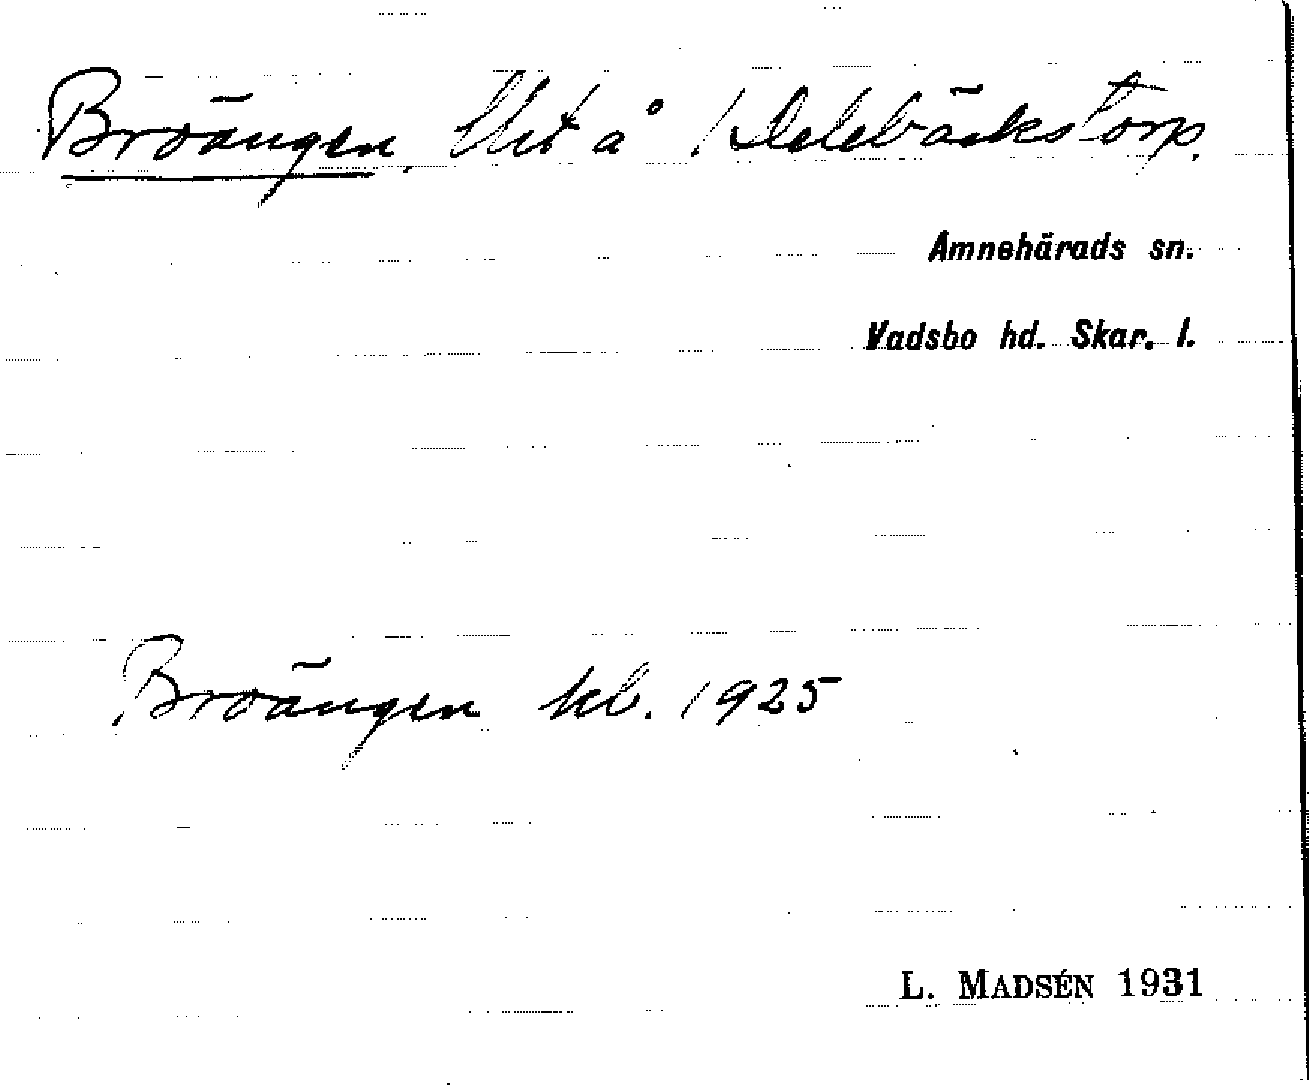 Broängen, å Delebäckstorp.
Amnehärads sn.
Vadsbo hd. Skar. l.
Broängen kb. 1925
L. MADSÉN 1931